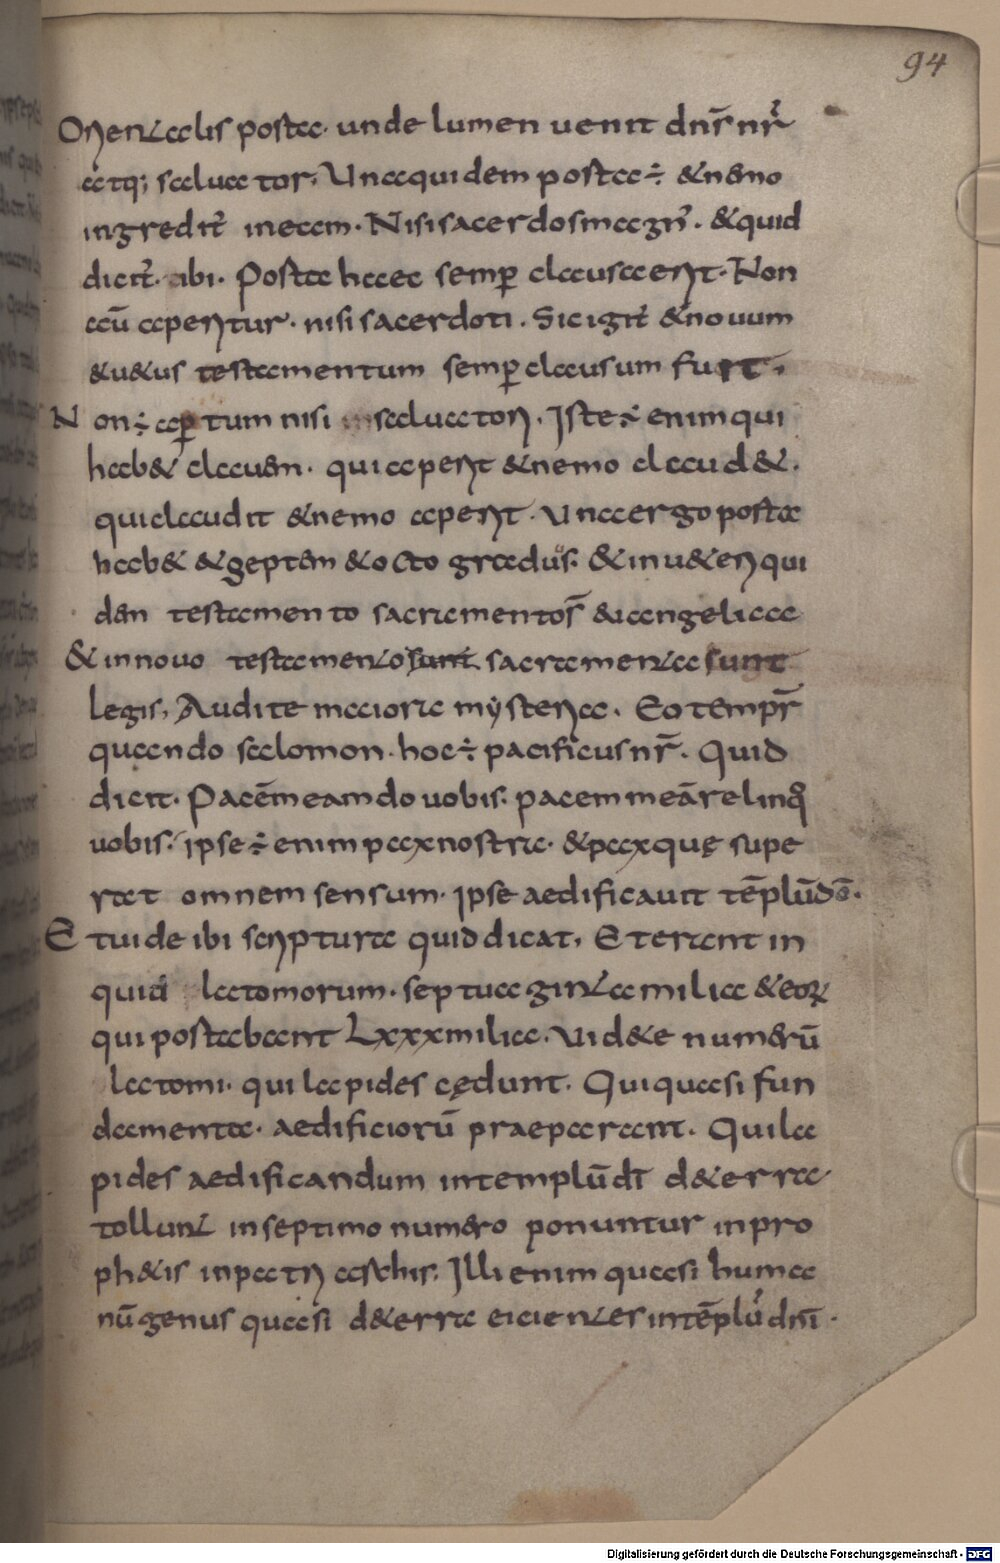 94
Orientalis posta. unde lumen uenit dn̄r nr̄
atq; saluator. Una quidem posta ÷ & nemo
ingredit̄ in eam. Nisi sacerdos magn̄. & quid
dicit̄. ibi. Posta haec semp̄ clausa erit. Non
aū aperitur. nisi sacerdoti. Sic igit̄ & nouum
& u&us testamentum semp̄ clausum fuit.
Non ÷ ap̄tum nisi saluatori. Iste ÷ enim qui
hab& clauem. qui aperit & nemo claud&.
qui claudit & nemo aperit. Una ergo posta
hab& & septem & octo gradus. & in u&eri qui
dem testamento sacramentos̄ & ia angelicae
& in nouo testamento sunt sacramenta sunt
legis. Audite maiora mysteria. Eo tempr̄
quando salomon. hoc ÷ pacificus nr̄. Quid
dicit. Pacēm eam do uobis. pacem meā relinq̄
uobis. ipse ÷ enim pax nostra. & pax quę supe
rat omnem sensum. ipse aedificauit tēplū dō.
Et uide ibi scriptura quid dicat. Et erant in
quid latomorum. septuaginta milia & eoꝝ
qui postabant Lxxx milia. Uid&e numerū
latomi. qui lapides cędunt. Qui quasi fun
damenta. aedificiorū praeparant. Qui la
pides aedificandum in templū dī d&erra
tollunt in septimo numero ponuntur in pro
ph&is in patriarchis. Illi enim quasi huma
nū genus quasi d&erra eicientes in tēplū dnī.
Digitalisierung gefördert durch die Deutsche Forschungsgemeinschaft - DFG